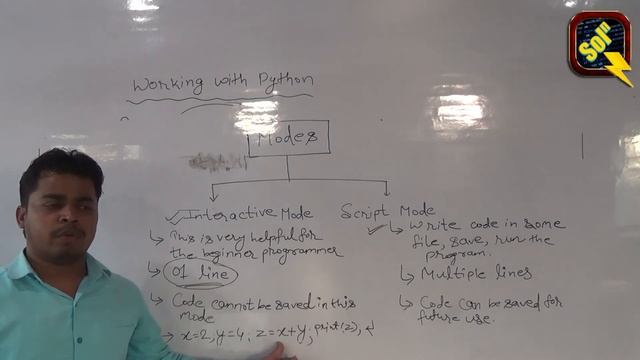 Working with Python
Modes
Interactive Mode
This is very helpful for
the beginner programmer
01 line
Code cannot be saved in this
mode
x=2, y=4; z=x+y; print(z);
Script Mode
Write code in some
file, save, run the
program.
Multiple lines
Code can be saved for
future use.
Sol